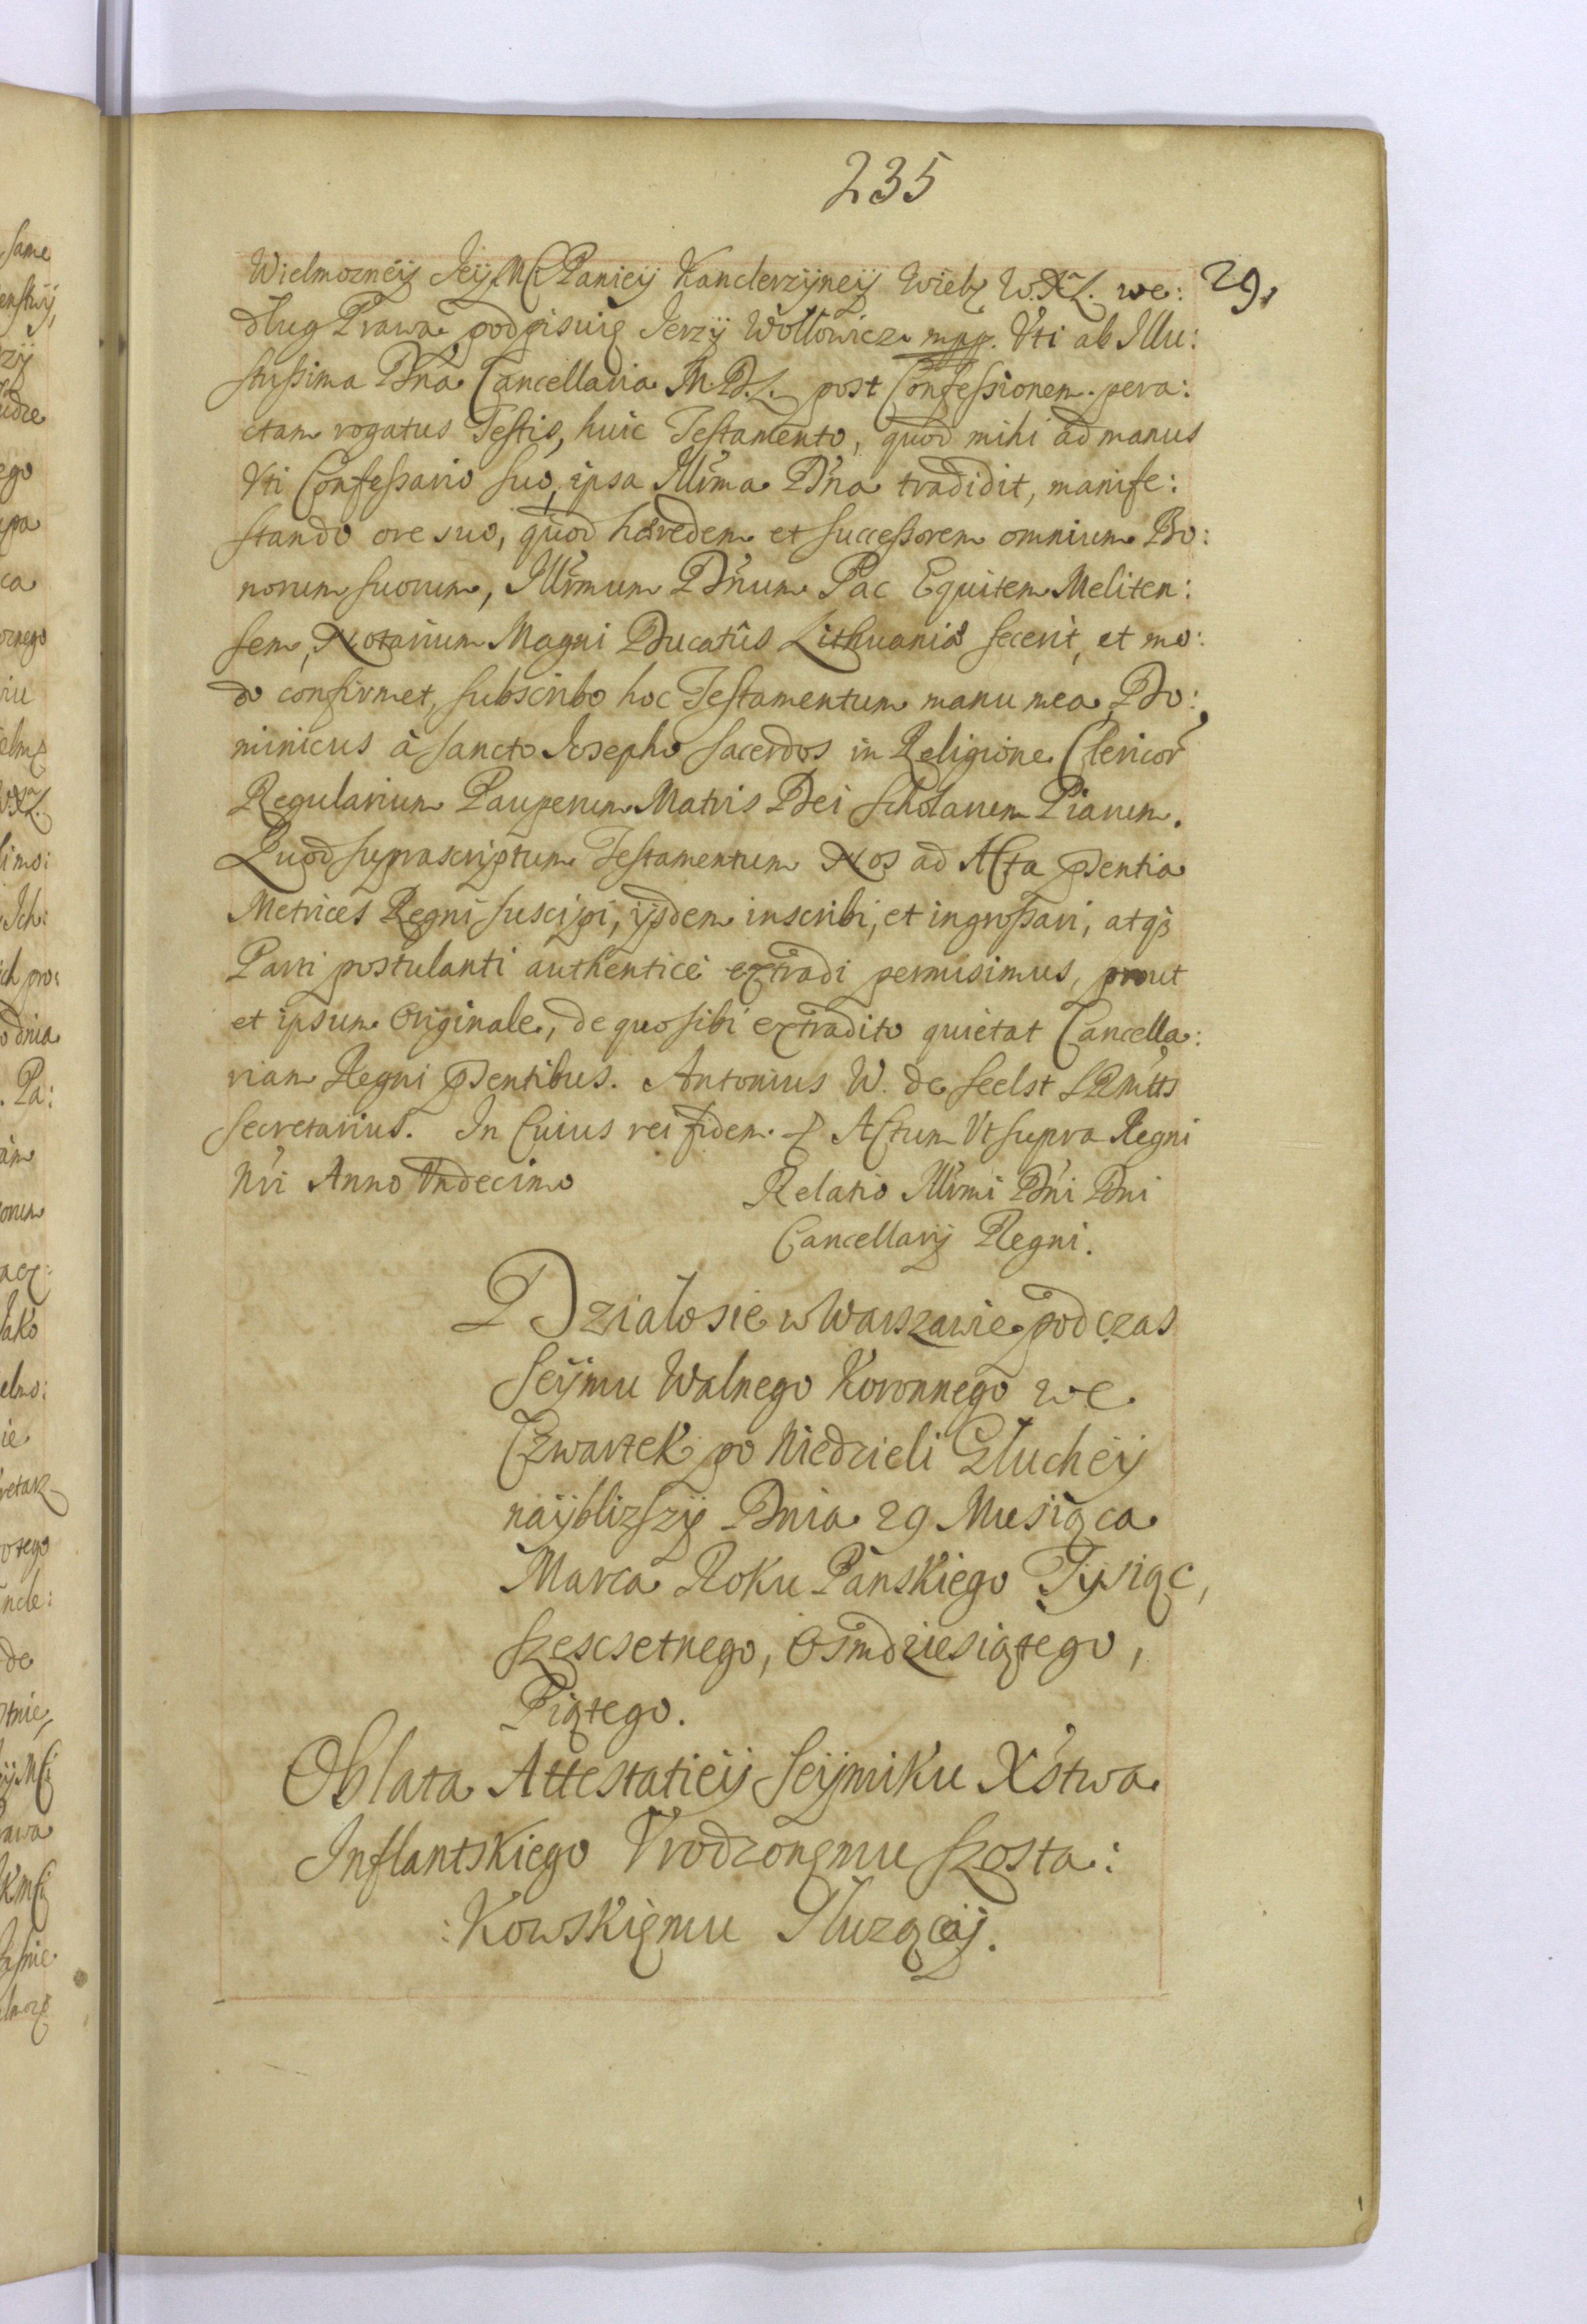 235
Wielmozneij Jeij Mći Panieij Kanclerzijneij Wielg W.X.L. we: 29.
dług Prawa podpisuię Jerzij Wołłowicz mpp. Vti ab Illu:
strissima Dńa Cancellaria M.D.L. post Confessionem pera:
ctam rogatus Testis, huic Testamento, quod mihi ad manus
Vti Confessario suo, ipsa Illrma Dńa tradidit, manife:
stando ore suo, quod hæredem et successorem omnium Bo:
norum suorum, Illrmum Dńum Pac Equitem Meliten:
sem, Notarium Magni Ducatûs Lithuaniæ fecerit, et mo:
do confirmet, subscribo hoc Testamentum manu mea, Do:
minicus à Sancto Josepho sacerdos in Religione Clericor
Regularium Pauperum Matris Dei Scholarum Piarum.
Quod suprascriptum Testamentum Nos ad Acta pńsentia
Metrices Regni suscipi, ijsdem inscribi, et ingrossari, atq3
Parti postulanti authenticè extradi permisimus, prout
et ipsum Originale, de quo sibi extradito quietat Cancella:
riam Regni pńsentibus. Antonius W. de Seelst SRMtts
Secretarius. In Cuius rei fidem Actum Vt supra Regni
Nri Anno Vndecimo
Relatio Illrmi Dńi Dńi
Cancellarij Regni.
Działo sie w Warszawie pod czas
Seijmu Walnego Koronnego we
Czwartek po Niedzieli Głucheij
naijblizszij Dnia 29 Miesiąca
Marca Roku Pańskiego Tysiąc,
szescsetnego, Osmdziesiątego,
Piątego.
Oblata Attestatieij Seijmiku X'stwa
Inflantskiego Vrodzonemu Szosta:
:kowskiemu Słuząceij.